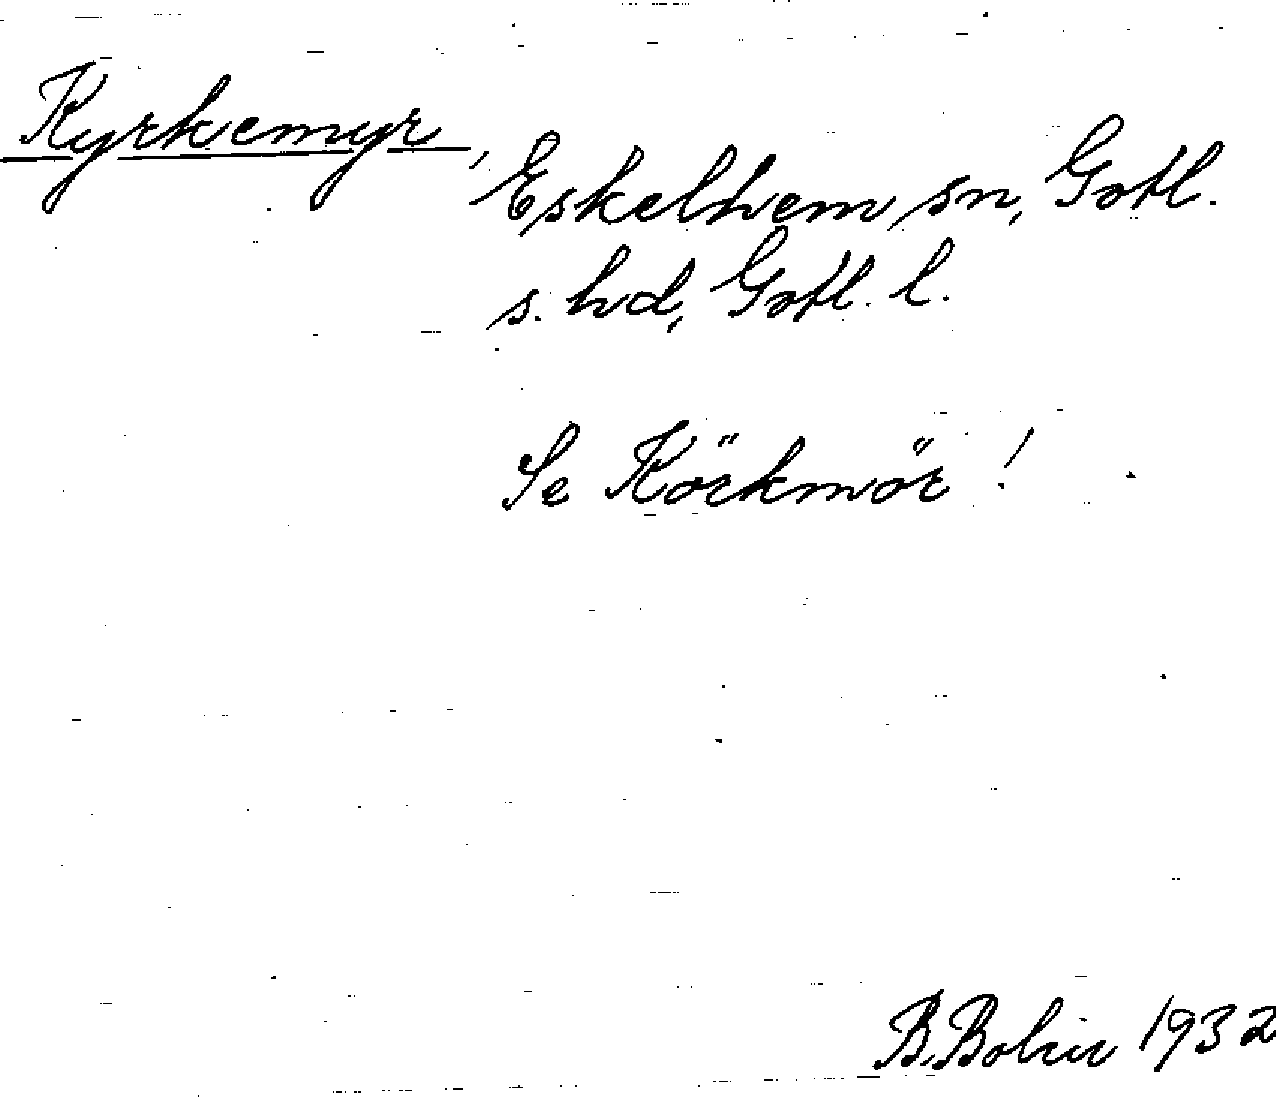 Kyrkemyr, Eskelhem sn, Gotl.
s. hd, Gotl. l.
Se Körkmör!
B. Bolin 1932